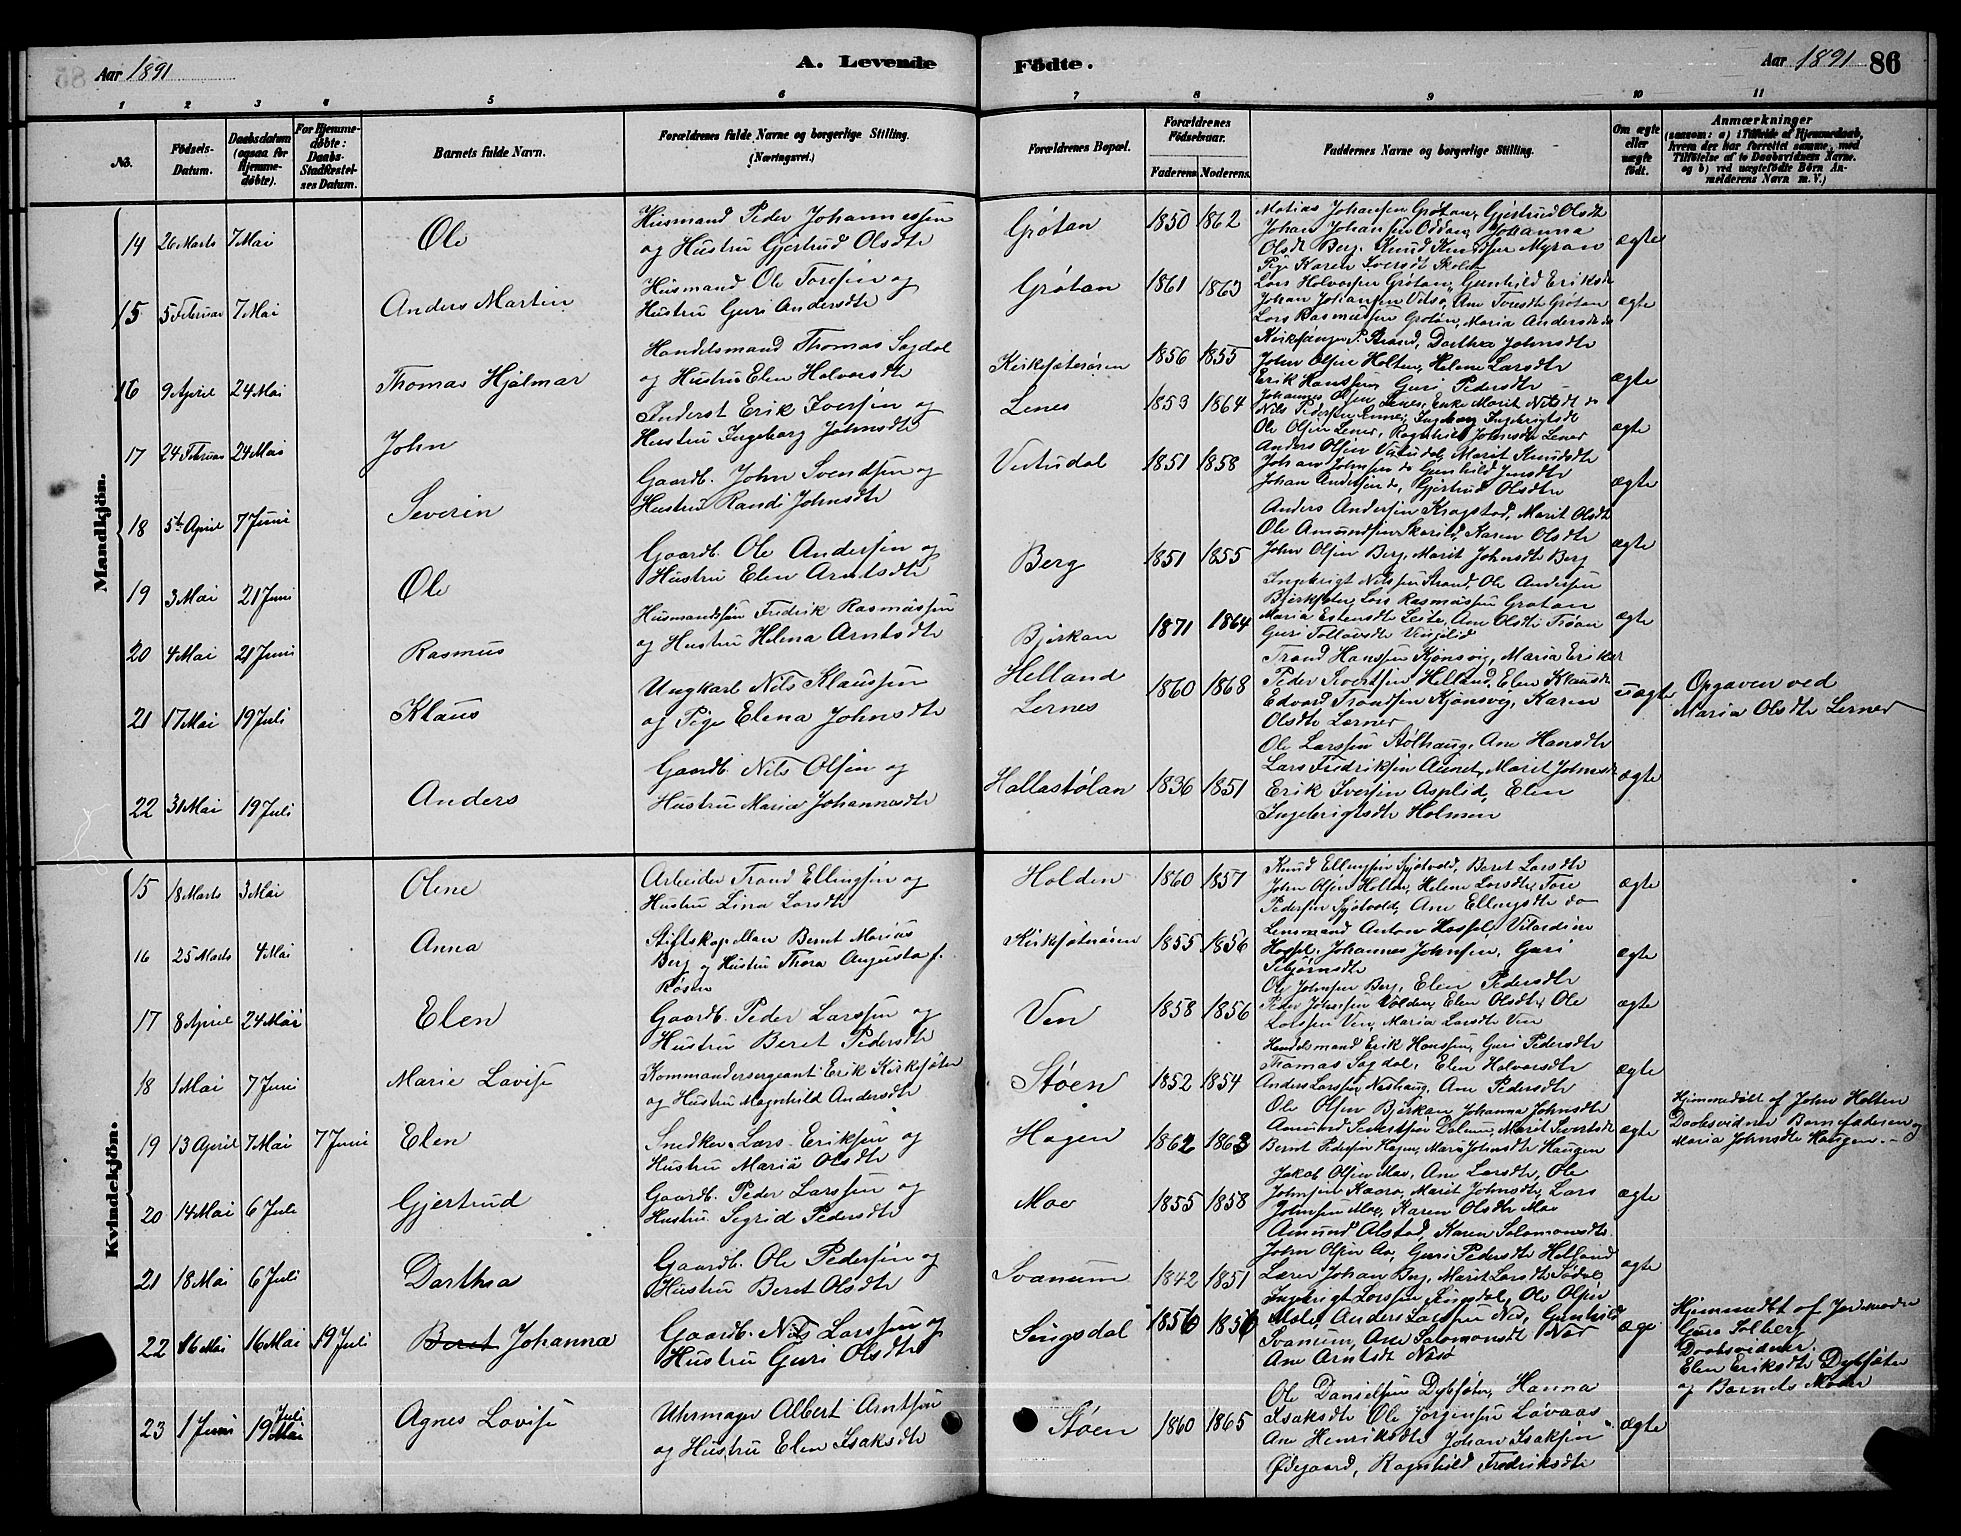 Aar 1891
A. Levende
Fødte.
Aar 1891
86
1 2 3 4 5 6 7 8 9 10 11
No.
Fødsels-Datum.
Daabsdatum (ogsaa for Hjemme-døbte).
For Hjemme-døbte: Daabs-Stadfæstel-ses Datum.
Barnets fulde Navn.
Forældrenes fulde Navne og borgerlige Stilling. (Næringsvei.)
Forældrenes Bopæl.
Forældrenes Fødselsaar.
Faderens
Moderens.
Faddernes Navne og borgerlige Stilling.
Om ægte eller uægte født.
Anmærkninger
(saasom: a) i Tilfælde af Hjemmedaab,
hvem der har forrettet samme, med
Tilføielse af to Daabsvidners Navne,
og b) ved uægtefødte Børn An-
melderens Navn m. V.)
Mandkjön.
14 26 Marts 7 Mai Ole
Husmand Peder Johannessen
og Hustru Gjertrud Olsdtr
Grøtan 1850 1862
Matias Johansen Grøtan, Gjertrud Olsdtr
Johan Johansen Oddan, Johanna
Olsdt Berg. Knud Knudsen Myran
Pige Karen Iversdt
ægte
15 5 Februar 7 Mai Anders Martin
Husmand Ole Toresen og
Hustru Guri Andersdtr
Grøtan 1861 1863
Lars Halvorsen Grøtan, Gunhild Eriksdt
Johan Johansen Vitsø, Ane Toresdtr Grøtan
Lars Rasmussen Grøtan, Maria Andersdt do
ægte
16 9 April 24 Mai Thomas Hjalmar
Handelsmand Thomas Sagdal
og Hustru Elen Halvorsdtr
Kirksæterøren 1856 1855
Kirkesanger P. Strand, Dorthea Johnsdtr
John Olsen Holten, Helene Larsdtr
Erik Hanssen, Guri Pedersdtr
ægte
17 24 Februar 24 Mai John
Inderst Erik Iversen og
Hustru Ingeborg Johnsdtr
Lenes 1853 1864
Johannes Olsen Lenes, Enke Marit Nilsdt do
Nils Pedersen Lenes, Ingeborg Ingebrigtsdt
Ole Olsen Lenes, Ragnhild Johnsdtr Lenes
ægte
18 5te April 7 Juni Severin
Gaardb. John Svendsen og
Hustru Randi Johnsdtr
1851 1858
Anders Olsen Marit Knudsdtr
Johan Johnsen do Gunhild Jensdtr
Johan Andersen do, Gjertrud Olsdtr
ægte
19 3 Mai 21 Juni Ole
Gaardb. Ole Andersen og
Hustru Elen Arntsdtr
Berg 1851 1855
Anders Andersen Krogstad, Marit Olsdt
Ole Amundsen Skarild, Karen Olsdtr
John Olsen Berg, Marit Johnsdtr Berg
ægte
20 4 Mai 21 Juni Rasmus
Husmandssøn Fredrik Rasmussen
og Hustru Helena Arntsdtr
Bjerkan 1871 1864
Ingebrigt Nilsen Strand, Ole Andersen
Bjerksæter, Lars Rasmussen Grøtan
Maria Estensdtr Ane Olsdtr Trøan
Guri Vingelid
ægte
21 17 Mai 19 Juli Klaus
Ungkarl Nils Klaussen
og Pige Elena Johnsdtr
Helland
Lernes
1860 1868
Trond Hanssen Kjønsvig, Maria Eriksdt
Peder Sivertsen Helland, Elen Klausdt
Edvard Trondsen Kjønsvig, Karen
Olsdtr Lernes
uægte
Opgaven ved
Maria Olsdtr Lernes
22 31 Mai 19 Juli Anders
Gaardb. Nils Olsen og
Hustru Maria Johannesdtr
Hallastølan 1836 1851
Ole Larssen Stølhaug, Ane Hansdtr
Lars Fredriksen Aunet, Marit Johnsdt
Erik Iversen Asplid, Elen
Ingebrigtsdtr Holmen
ægte
Kvindekjön.
15 18 Marts 3 Mai Oline
Arbeider Trond Ellingsen og
Hustru Lina Larsdtr
Holden 1860 1857
Knud Ellingsen Sjøtvold, Beret Larsdtr
John Olsen Holten, Helene Larsdtr, Tore
Pedersen Sjøtvold, Ane Ellingsdtr do
ægte
16 25 Marts 4 Mai Anna
Stiftskapellan Bernt Marius
Berg og Hustru Thora Augusta f.
Rosen
Kirksæterøren 1855 1856
Lensmand Anton Hossel, Vilardine
Hossel, Johannes Johnsen, Guri
ægte
17 8 April 24 Mai Elen
Gaardb. Peder Larssen og
Hustru Beret Pedersdtr
Ven 1858 1856
Ole Johnsen Berg, Elen Pedersdtr
Peder Johnsen Volden, Elen Olsdtr, Ole
Larssen Ven, Maria Larsdtr Ven
ægte
18 1 Mai 7 Juni Marie Lovise
Kommandersergeant Erik Kirksæter
og Hustru Magnhild Andersdtr
Støen 1852 1854
Handelsmand Erik Hanssen, Guri Pedersdtr
Thomas Sagdal, Elen Halvorsdtr
Anders Larssen Neshaug, Ane Pedersdtr
ægte
19 13 April 7 Mai 7 Juni Elen
Snedker Lars Eriksen og
Hustru Maria Olsdtr
Hagen 1862 1863
Ole Olsen Bjerkan, Johanna Johnsdtr
Amund Marit Sivertsdt
Bernt Pedersen Hagen, Mari Johnsdtr Haugen
ægte
Hjemmedøbt af John Holten
Daabsvidner Barnefaderen og
Maria Johnsdtr Haugen.
20 14 Mai 6 Juli Gjertrud
Gaardb. Peder Larssen og
Hustru Segrid Pedersdtr
Moe 1855 1858
Jakob Olsen Moe, Ane Larsdtr, Ole
Johnsen Marit Johnsdtr, Lars
Johnsen Moe, Karen Olsdtr Moe
ægte
21 18 Mai 6 Juli Dorthea
Gaardb. Ole Pedersen og
Hustru Beret Olsdtr
Svanem 1842 1851
Amund Alstad, Karen Salomonsdtr
John Olsen Aa, Guri Pedersdtr Helland
Lærer Johan Berg, Marit Larsdtr
ægte
22 16 Mai 16 Mai 19 Juli Beret Johanna
Gaardb. Nils Larssen og
Hustru Guri Olsdtr
Singsdal 1856 1856
Ingebrigt Larssen Singsdal, Ole Olsen
Moli, Anders Larssen Gunhild
Svanem, Ane Salomonsdt
Ane Arntsdt
ægte
Hjemmedøbt af Jordmoder
Gurø Solberg
Daabsvidner:
Elen Eriksdtr Dybsæter
og Barnets Moder
23 1 Juni 19 Juli Mai Agnes Lovise
Uhrmager Albert Arntsen
og Hustru Elen Isaksdtr
Støen 1860 1865
Ole Danielsen Dybsæter, Hanna
Isaksdtr Ole Jørgensen Løvaas
Ane Henriksdtr Johan Isaksen
Ødegaard, Ragnhild Fredriksdtr
ægte